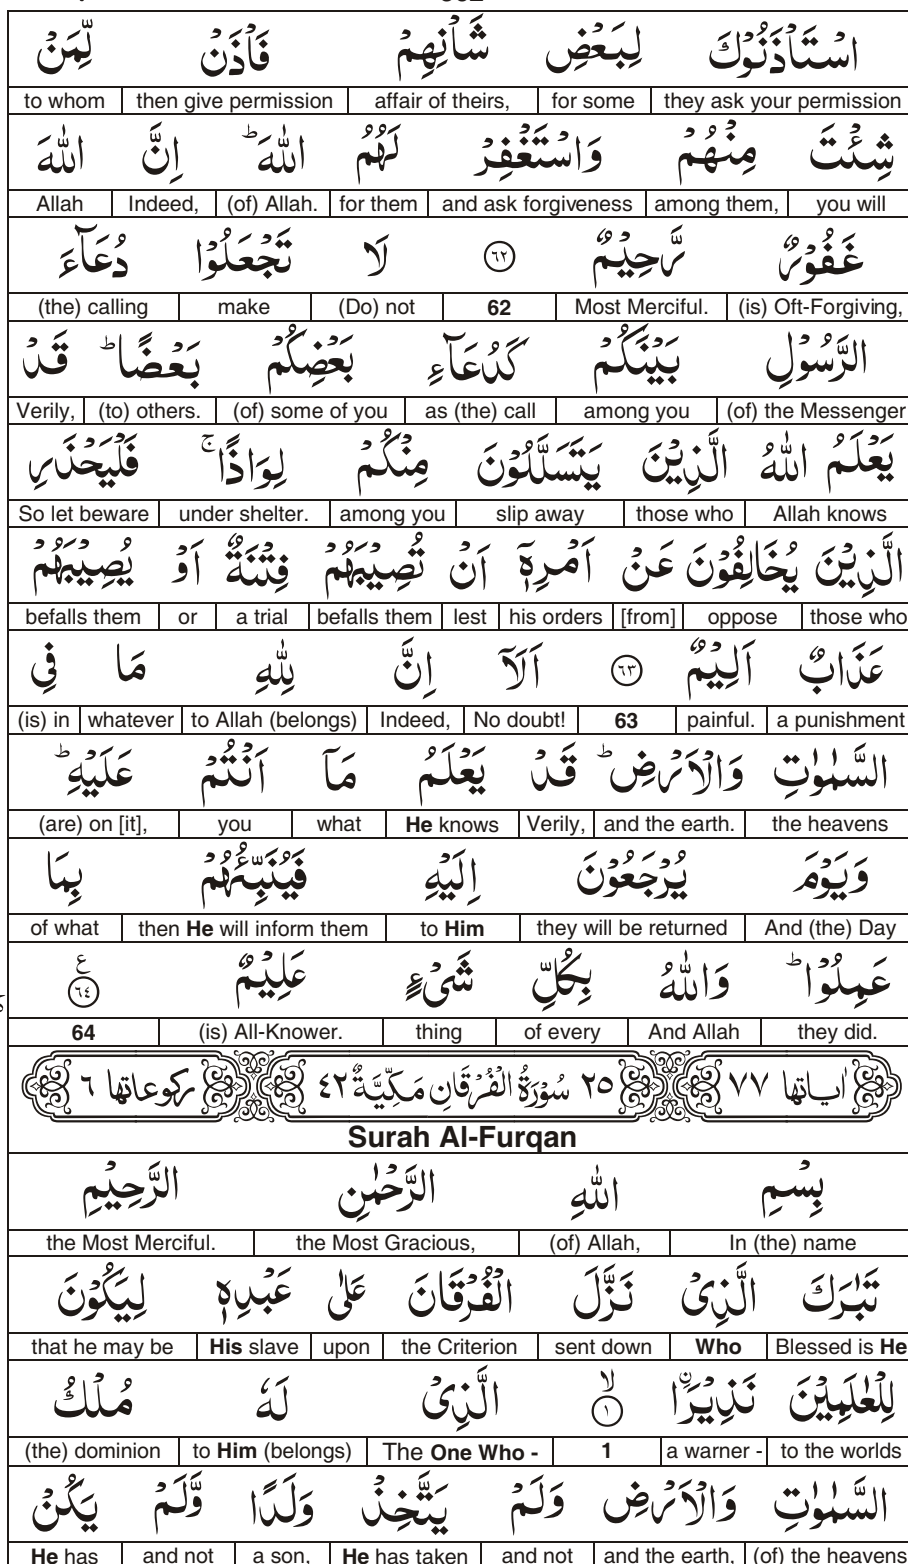 اسْتَاْذَنُوْكَ لِبَعْضِ شَاْنِهِمْ فَاْذَنْ لِّمَنْ
they ask your permission | for some | affair of theirs, | then give permission | to whom
شِئْتَ مِنْهُمْ وَاسْتَغْفِرْ لَهُمُ اللّٰهَ ؕ اِنَّ اللّٰهَ
you will | among them, | and ask forgiveness | for them | (of) Allah. | Indeed, | Allah
غَفُوْرٌ رَّحِيْمٌ ٦٢ لَا تَجْعَلُوْا دُعَآءَ
(is) Oft-Forgiving, | Most Merciful. | 62 | (Do) not | make | (the) calling
الرَّسُوْلِ بَيْنَكُمْ كَدُعَآءِ بَعْضِكُمْ بَعْضًا ؕ قَدْ
(of) the Messenger | among you | as (the) call | (of) some of you | (to) others. | Verily,
يَعْلَمُ اللّٰهُ الَّذِيْنَ يَتَسَلَّلُوْنَ مِنْكُمْ لِوَاذًا ۚ فَلْيَحْذَرِ
Allah knows | those who | slip away | among you | under shelter. | So let beware
الَّذِيْنَ يُخَالِفُوْنَ عَنْ اَمْرِهٖۤ اَنْ تُصِيْبَهُمْ فِتْنَةٌ اَوْ يُصِيْبَهُمْ
those who | oppose | [from] | his orders | lest | befalls them | a trial | or | befalls them
عَذَابٌ اَلِيْمٌ ٦٣ اَلَاۤ اِنَّ لِلّٰهِ مَا فِى
a punishment | painful. | 63 | No doubt! | Indeed, | to Allah (belongs) | whatever | (is) in
السَّمٰوٰتِ وَالْاَرْضِ ؕ قَدْ يَعْلَمُ مَاۤ اَنْتُمْ عَلَيْهِ ؕ
the heavens | and the earth. | Verily, | He knows | what | you | (are) on [it],
وَيَوْمَ يُرْجَعُوْنَ اِلَيْهِ فَيُنَبِّئُهُمْ بِمَا
And (the) Day | they will be returned | to Him | then He will inform them | of what
عَمِلُوْا ؕ وَاللّٰهُ بِكُلِّ شَىْءٍ عَلِيْمٌ ٦٤ ع
they did. | And Allah | of every | thing | (is) All-Knower. | 64
اٰياتها ٧٧ ٢٥ سُوْرَةُ الْفُرْقَانِ مَكِّيَّةٌ ٤٢ ركوعاتها ٦
Surah Al-Furqan
بِسْمِ اللّٰهِ الرَّحْمٰنِ الرَّحِيْمِ
In (the) name | (of) Allah, | the Most Gracious, | the Most Merciful.
تَبٰرَكَ الَّذِىْ نَزَّلَ الْفُرْقَانَ عَلٰى عَبْدِهٖ لِيَكُوْنَ
Blessed is He | Who | sent down | the Criterion | upon | His slave | that he may be
لِلْعٰلَمِيْنَ نَذِيْرًا ۙ ١ الَّذِىْ لَهٗ مُلْكُ
to the worlds | a warner - | 1 | The One Who - | to Him (belongs) | (the) dominion
السَّمٰوٰتِ وَالْاَرْضِ وَلَمْ يَتَّخِذْ وَلَدًا وَّلَمْ يَكُنْ
(of) the heavens | and the earth, | and not | He has taken | a son, | and not | He has